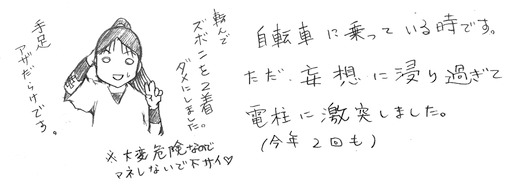 自転車に乗っている時です。
ただ、妄想に浸り過ぎて
電柱に激突しました。
(今年2回も)
転んで
ズボンを2着
ダメにしました。
手足
アザだらけです。
※大変危険なので
マネしないで下サイ♡